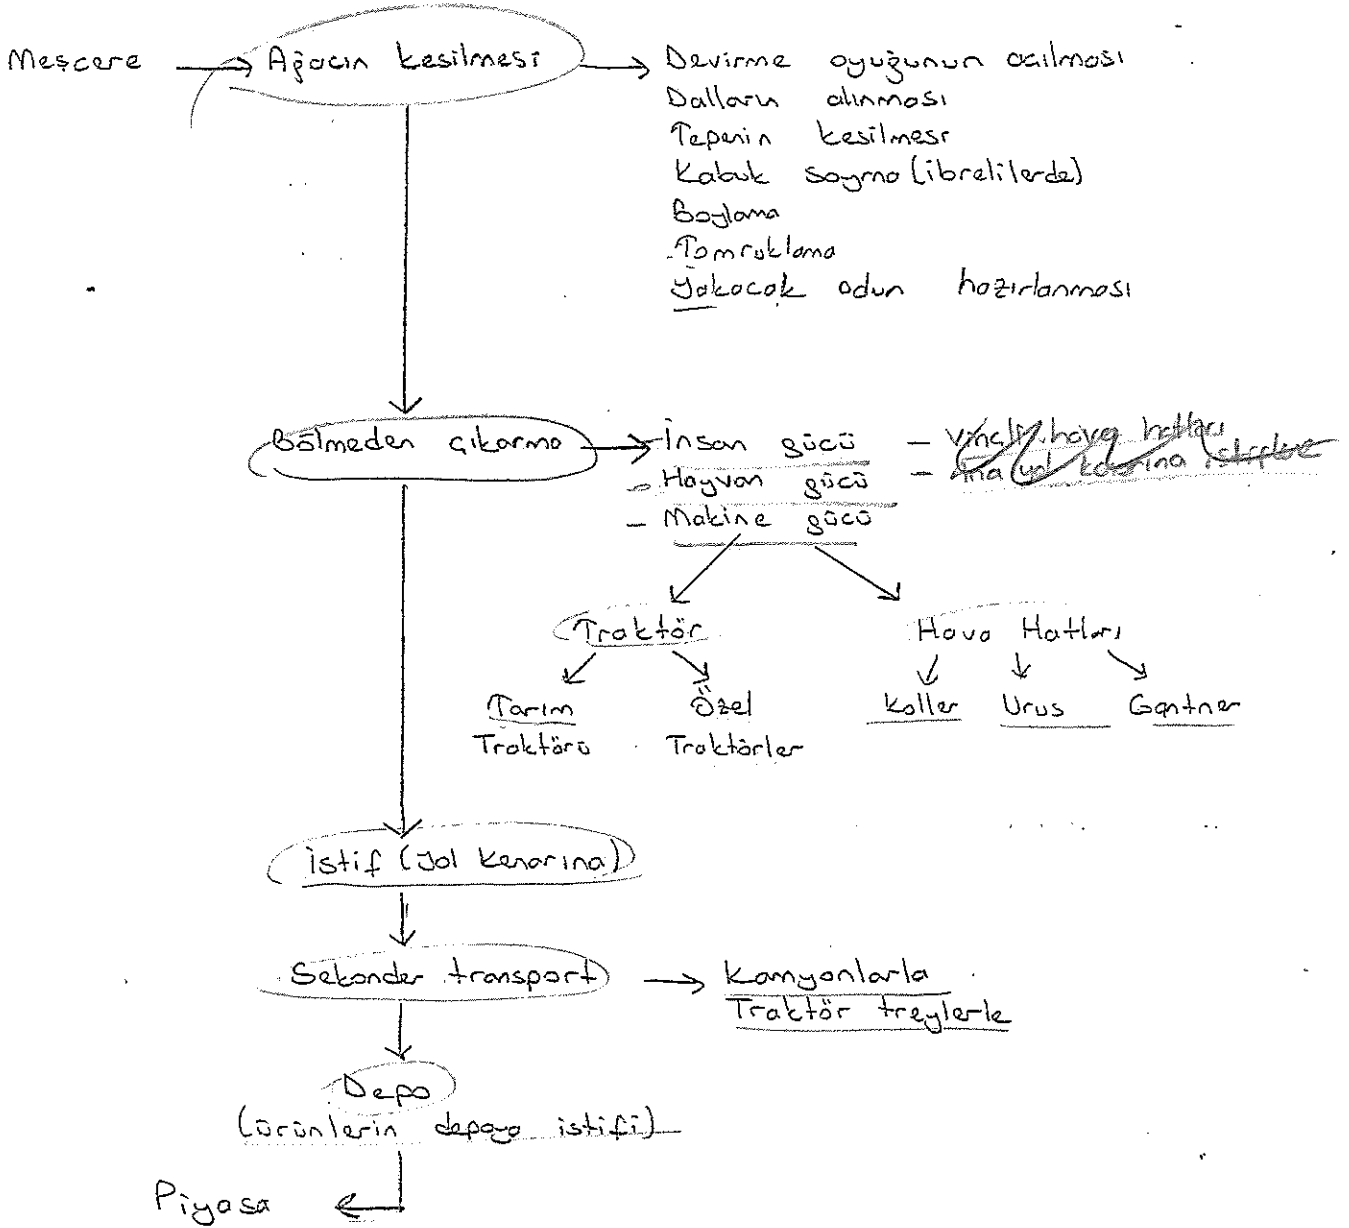 Meşcere → Ağacın kesilmesi → Devirme oyuğunun açılması
Dalların alınması
Tepenin kesilmesi
Kabuk soyma (ibrelilerde)
Boylama
Tomruklama
Yakacak odun hazırlanması
Bölmeden çıkarma → - İnsan gücü - Vinçli hava hatları
- Hayvan gücü - Ana yol kenarına istifleme
- Makine gücü
Traktör Hava Hatları
Tarım Özel Koller Urus Gantner
Traktörü Traktörler
İstif (yol kenarına)
Sekonder transport → Kamyonlarla
Traktör treylerle
Depo
(ürünlerin depoya istifi)
Piyasa